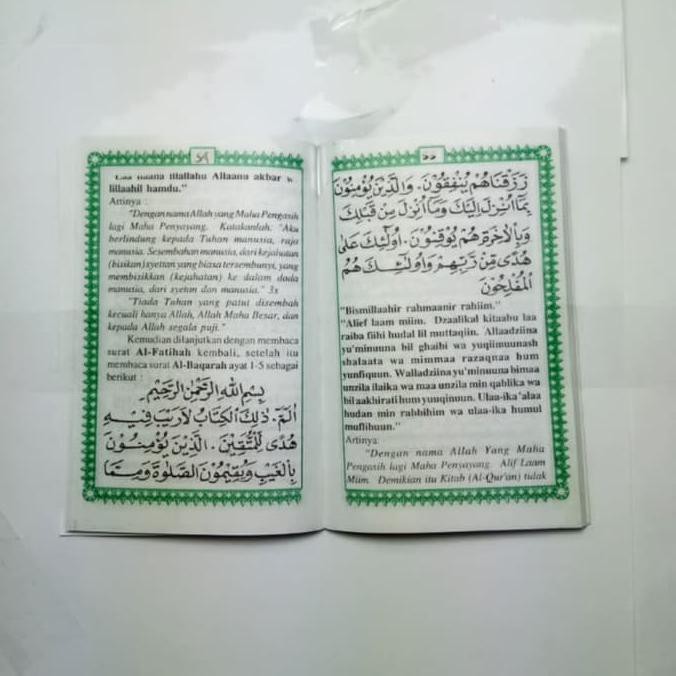 ٥٨
Laa ilaaha illallahu Allaahu akbar w
lillaahil hamdu."
Artinya :
"Dengan nama Allah yang Maha Pengasih
lagi Maha Penyayang. Katakanlah: "Aku
berlindung kepada Tuhan manusia, raja
manusia. Sesembahan manusia, dari kejahatan
(bisikan) syettan yang biasa tersembunyi, yang
membisikkan (kejahatan) ke dalam dada
manusia, dari syetan dan manusia." 3x
"Tiada Tuhan yang patut disembah
kecuali hanya Allah, Allah Maha Besar, dan
kepada Allah segala puji."
Kemudian dilanjutkan dengan membaca
surat Al-Fatihah kembali, setelah itu
membaca surat Al-Baqarah ayat 1-5 sebagai
berikut :
بِسْمِ اللهِ الرَّحْمٰنِ الرَّحِيْمِ
الٓمّٓ. ذٰلِكَ الْكِتَابُ لَارَيْبَ فِيْهِ
هُدًى لِلْمُتَّقِيْنَ. الَّذِيْنَ يُؤْمِنُوْنَ
بِالْغَيْبِ وَيُقِيْمُوْنَ الصَّلٰوةَ وَمِمَّا
رَزَقْنَاهُمْ يُنْفِقُوْنَ. وَالَّذِيْنَ يُؤْمِنُوْنَ
بِمَآ اُنْزِلَ اِلَيْكَ وَمَآ اُنْزِلَ مِنْ قَبْلِكَ
وَبِالْاٰخِرَةِ هُمْ يُوْقِنُوْنَ. اُولٰٓئِكَ عَلٰى
هُدًى مِّنْ رَّبِّهِمْ وَاُولٰٓئِكَ هُمُ
الْمُفْلِحُوْنَ
"Bismillaahir rahmaanir rahiim."
"Alief laam miim. Dzaalikal kitaabu laa
raiba fiihi hudal lil muttaqiin. Allaadziina
yu'minuuna bil ghaibi wa yuqiimuunash
shalaata wa mimmaa razaqnaa hum
yunfiquun. Walladziina yu'minuuna bimaa
unzila ilaika wa maa unzila min qablika wa
bil aakhirati hum yuuqinuun. Ulaa-ika 'alaa
hudan min rabbihim wa ulaa-ika humul
muflihuun."
Artinya:
"Dengan nama Allah Yang Maha
Pengasih lagi Maha Penyayang. Alif Laam
Miim. Demikian itu Kitab (Al-Qur'an) tidak